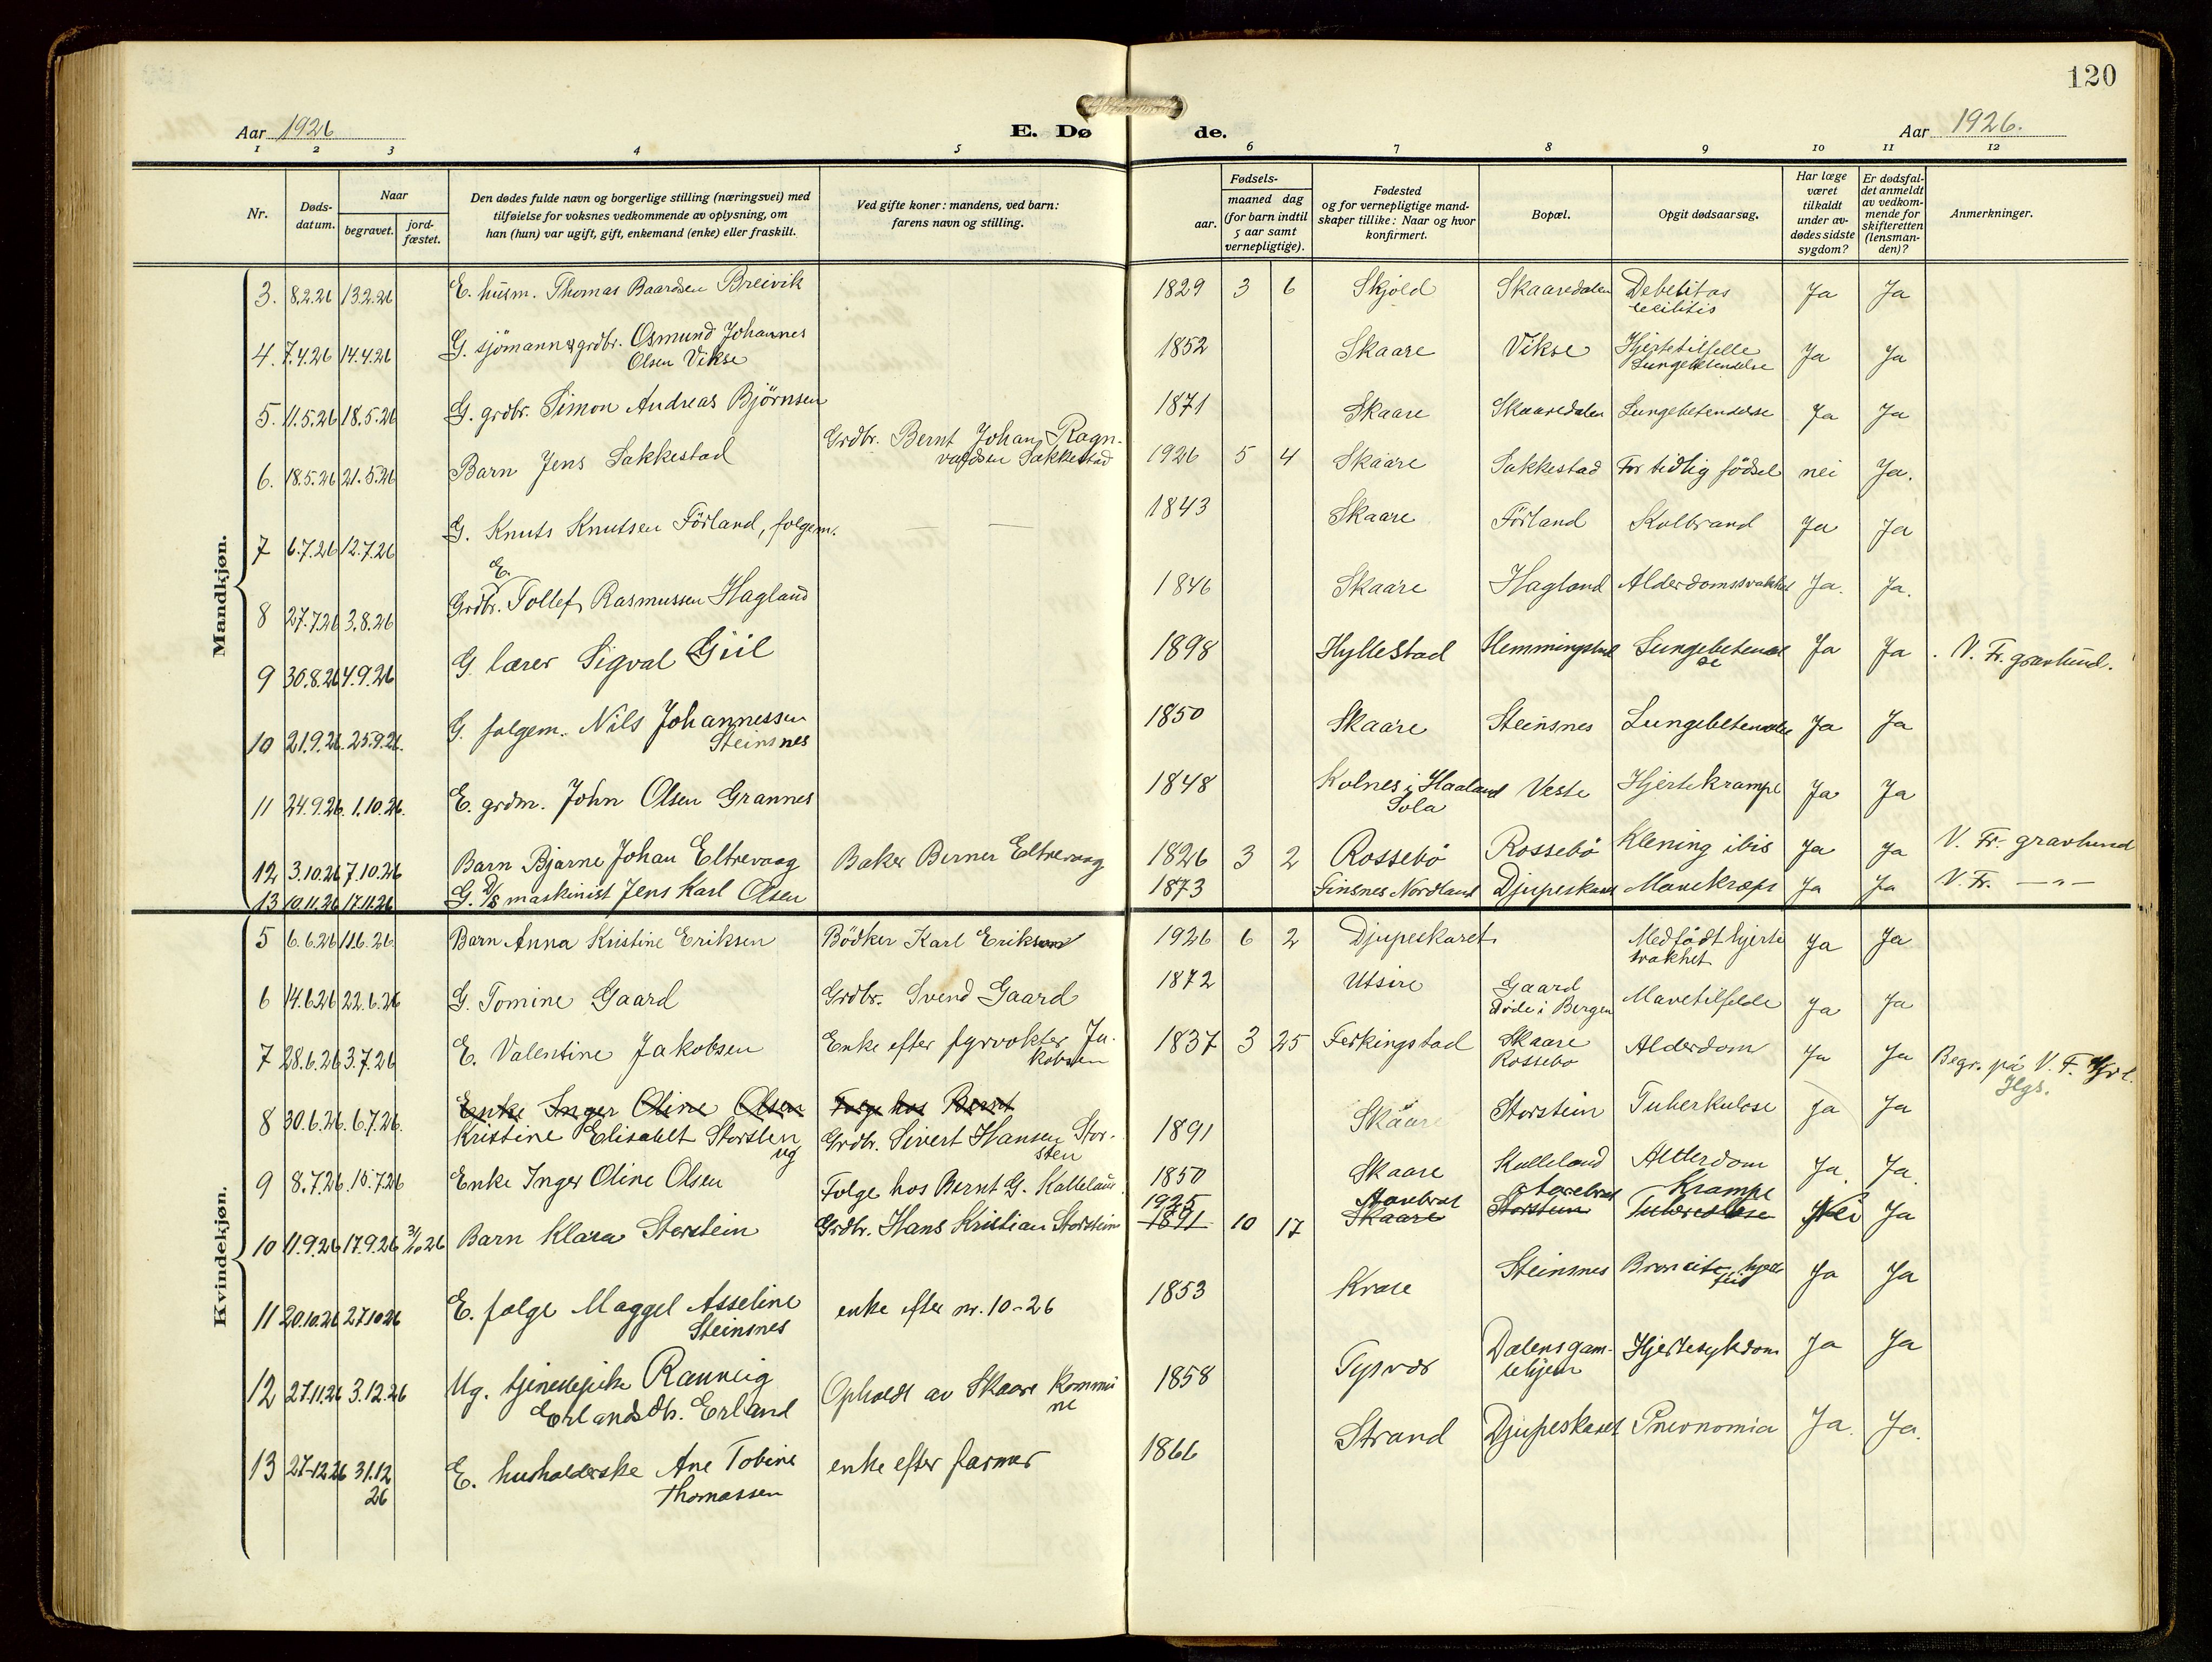 120
Aar 1926 E. Dø de. Aar 1926.
1 2 3 4 5 6 7 8 9 10 11 12
Nr.
Døds-
datum.
Naar
begravet.
jord-
fæstet.
Den dødes fulde navn og borgerlige stilling (næringsvei) med
tilføielse for voksnes vedkommende av oplysning, om
han (hun) var ugift, gift, enkemand (enke) eller fraskilt.
Ved gifte koner: mandens, ved barn:
farens navn og stilling.
Fødsels-
aar.
maaned dag
(for barn indtil
5 aar samt
vernepligtige).
Fødested
og for vernepligtige mand-
skaper tillike: Naar og hvor
konfirmert.
Bopæl.
Opgit dødsaarsag.
Har læge
været
tilkaldt
under av-
dødes sidste
sygdom?
Er dødsfal-
det anmeldt
av vedkom-
mende for
skifteretten
(lensman-
den)?
Anmerkninger.
Mandkjøn.
3. 8.2.26 13.2.26 E. husm. Thomas Baardsen Breivik 1829 3 6 Skjold Skaaredalen Debelitas
Ja Ja
4. 7.4.26 14.4.26 G. sjömann & grdbr. Osmund Johannes
Olsen Vikse 1852 Skaare Vikse Hjertetilfelle
Lungebetendelse Ja Ja
5. 11.5.26 18.5.26 G. grdbr. Simon Andreas Björnsen 1871 Skaare Skaaredalen Lungebetendelse Ja Ja
6. 18.5.26 21.5.26 Barn Jens Sakkestad Grdbr. Bernt Johan Ragn-
valdsen Sakkestad 1926 5 4 Skaare Sakkestad For tidlig födsel nei Ja.
7 6.7.26 12.7.26 G. Knuts Knutsen Förland, folgem. — — 1843 Skaare Förland Kolbrand Ja Ja
E.
8 27.7.26 3.8.26 Grdbr. Tollef Rasmussen Hagland 1846 Skaare Hagland Alderdomssvakhet Ja. Ja.
9 30.8.26 4.9.26 G. lærer Sigval Giil 1898 Hyllestad Hemmingstad Lungebetendel
se Ja Ja. V. Fr. gravlund.
10 21.9.26. 25.9.26. G. folgem. Nils Johannessen
Steinsnes 1850 Skaare Steinsnes Lungebetendelse Ja Ja
11 24.9.26. 1.10.26. E. grdm. John Olsen Grannes 1848 Kolnes i Haaland
Sola Veste Hjertekrampe Ja Ja
12 3.10.26 7.10.26 Barn Bjarne Johan Eltrevaag Baker Berner Eltrevaag 1826 3 2 Rossebö Rossebö Klening ibis Ja Ja V. Fr. gravlund
13 10.11.26 17.11.26 G. D/S maskinist Jens Karl Olsen 1873 Finsnes Nordland Djupeskaret Mavekræft Ja Ja V. Fr. — " —
Kvindekjøn.
5 6.6.26 11.6.26. Barn Anna Kristine Eriksen Bödker Karl Eriksen 1926 6 2 Djupeskaret. Medfödt hjerte
svakhet Ja Ja
6 14.6.26 22.6.26 G. Tomine Gaard Grdbr. Svend Gaard 1872 Utsire Gaard
döde i Bergen Mavetilfelde Ja Ja
7 28.6.26 3.7.26 E. Valentine Jakobsen Enke efter fyrvokter Ja-
kobsen 1837 3 25 Ferkingstad Skaare
Rossebö Alderdom Ja Ja Begr. på V. F.
Hgs.
Enke Inger Oline Olsen Folge hos Bernt
8 30.6.26. 6.7.26. Kristine Elisabet Storsten
ug Grdbr. Sivert Hansen Stor-
sten 1891 Skaare Storstein Tuberkulose Ja Ja
9 8.7.26. 15.7.26 Enke Inger Oline Olsen Folge hos Bernt G. Kalleland 1850 Skaare Kalleland Allerdom
Krampe Ja. Ja.
10 11.9.26 17.9.26 31/10 26 Barn Klara Storstein Grdbr. Hans Kristian Storstein 1925
1891 10 17 Skaare Storstein Tuberculose Nei Ja
11 20.10.26 27.10.26 E. folge Maggel Asseline
Steinsnes enke efter nr. 10-26 1853 Steinsnes Ja Ja
12 27.11.26 3.12.26 Ug. tjenestepike Ranneig
Erlandsdtr. Erland Opholdt av Skaare kommu
ne 1858 Tysvær Dalens gam-
lehjem Hjertesykdom Ja Ja
13 27-12.26 31.12
26 E. husholderske Ane Tobine
Thomassen enke efter farmer 1866 Strand Djupeskaret Pneonomia Ja. Ja.